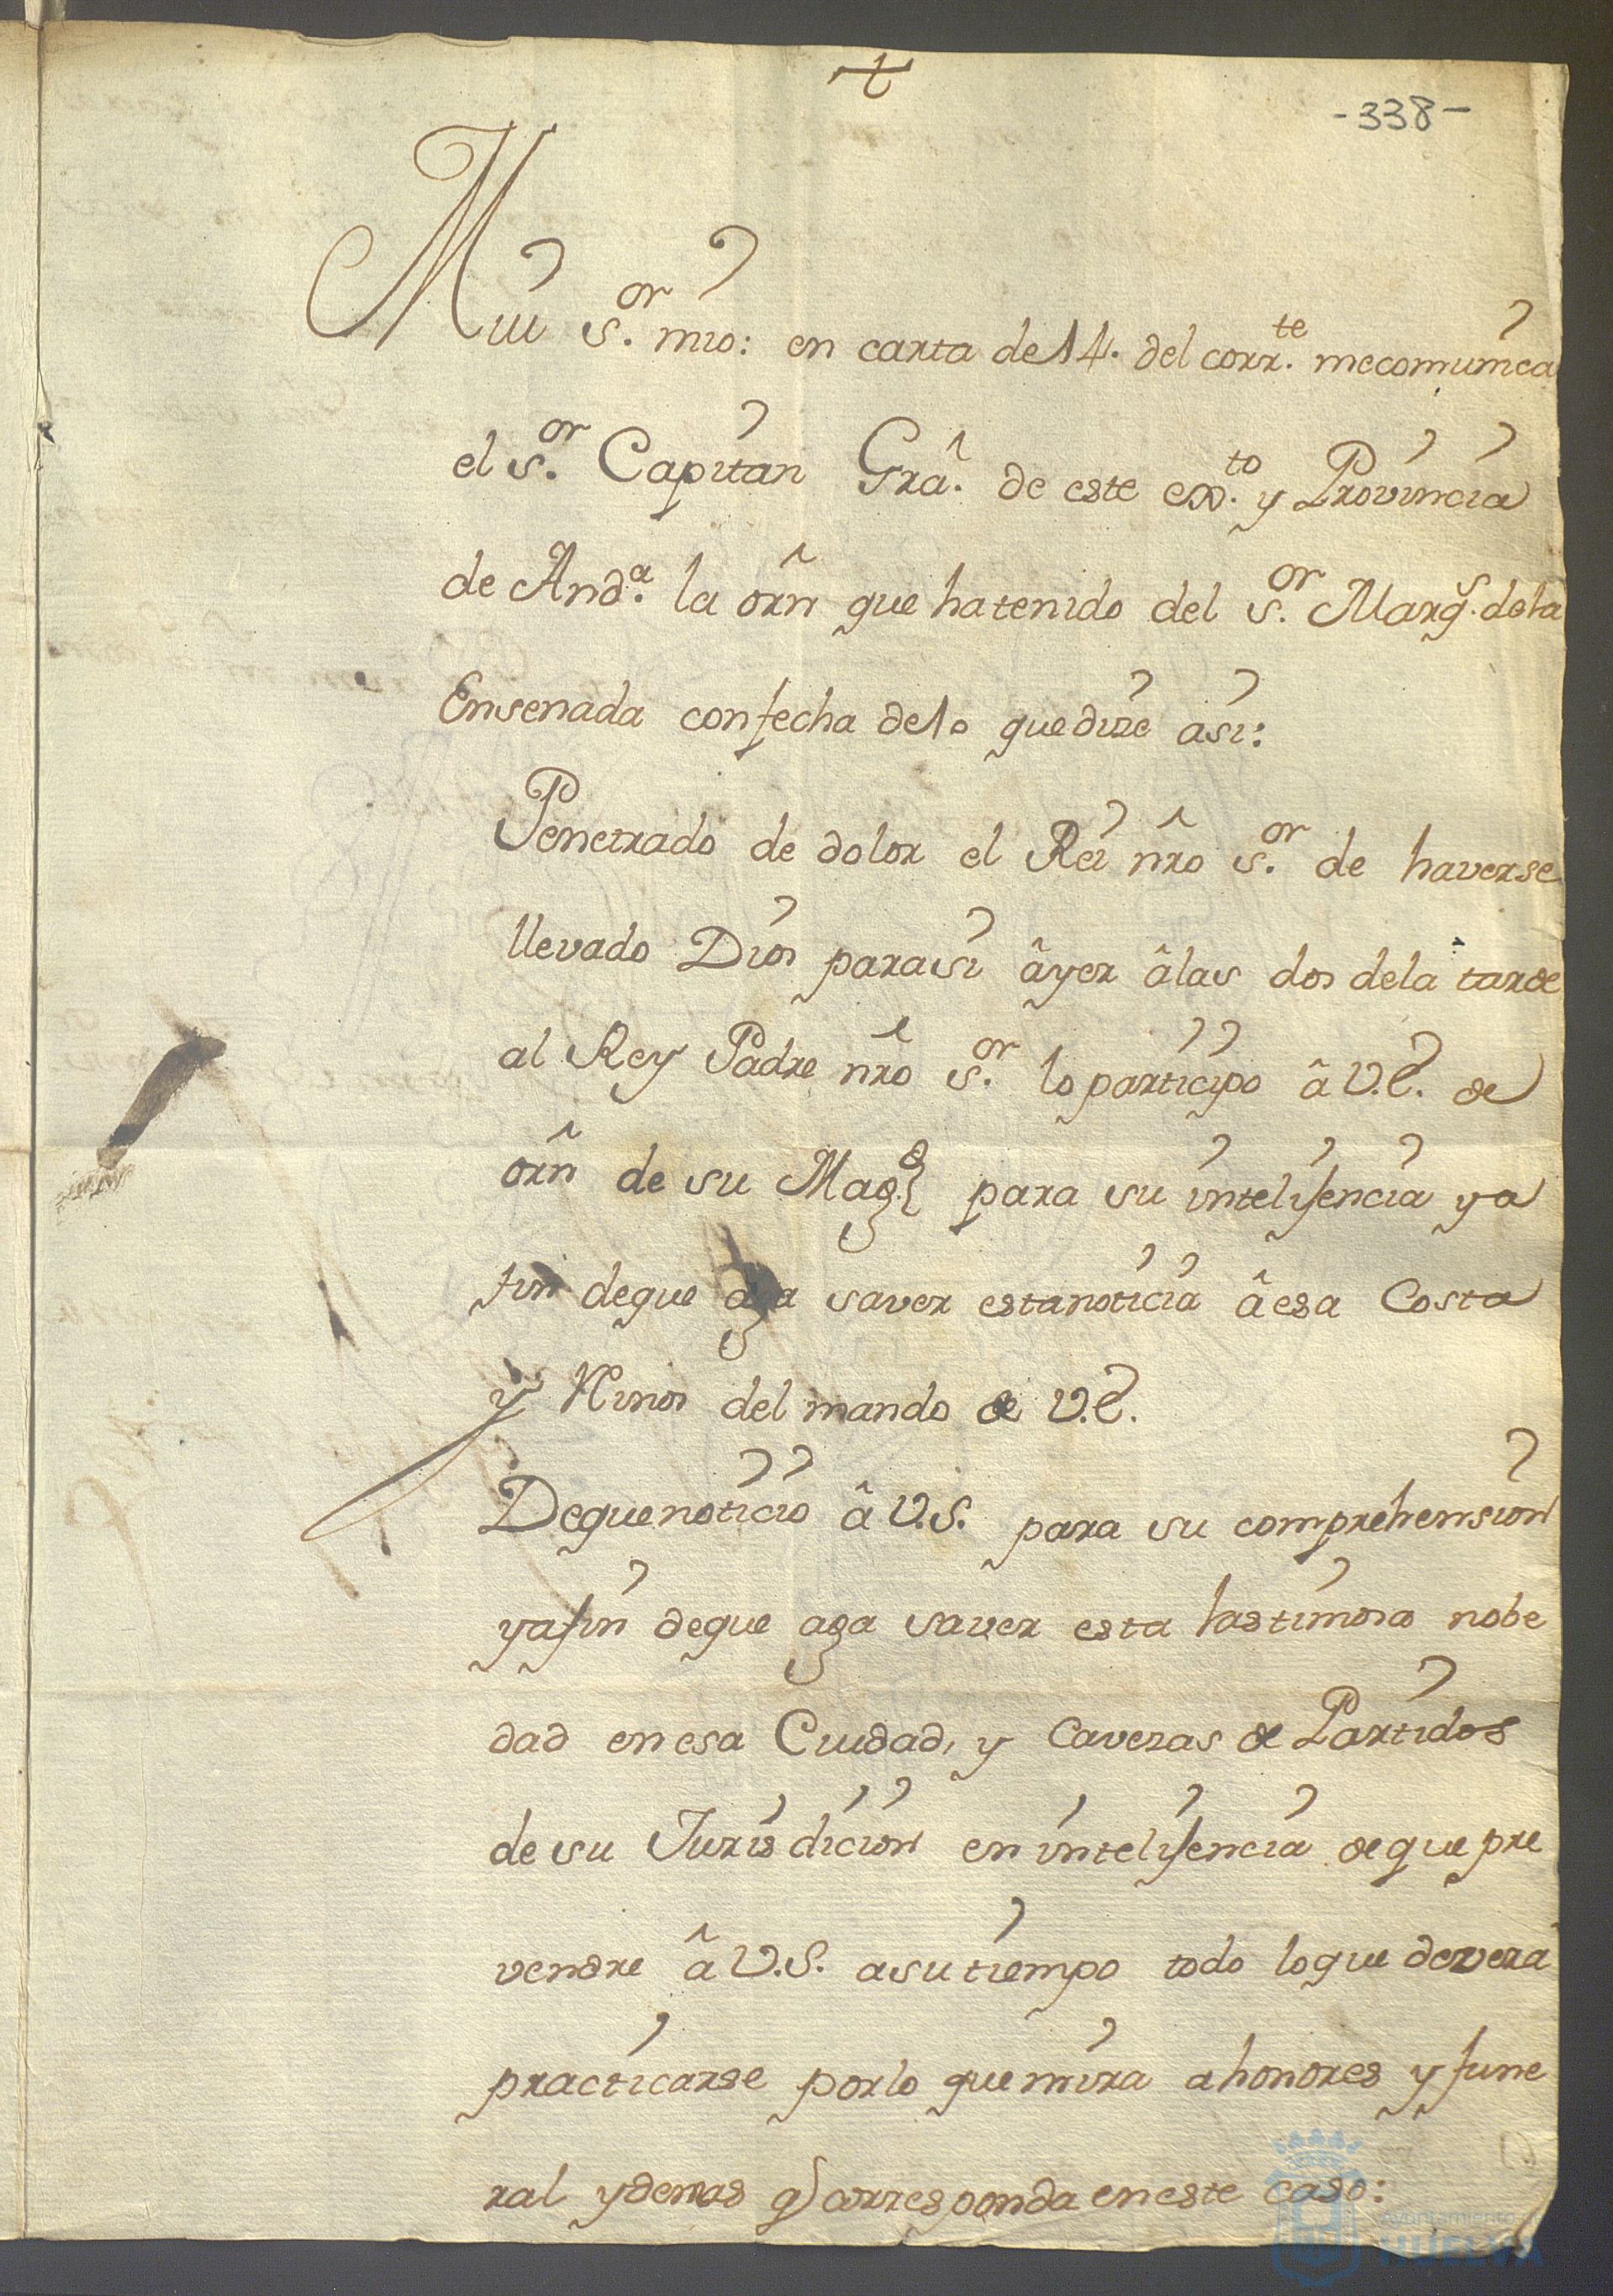 †
-338-
Mui s.or mio: en carta de 14. del corr.te me comunica
el s.or Capitan Grâ. de este ex.to y Provincia
de And.a la orñ que ha tenido del s.or Marq.s de la
Ensenada con fecha de 10 que dize asi:
Penetrado de dolor el Rei nrô s.or de haverse
llevado Dios para si âyer âlas dos dela tarde
al Rey Padre nrô s.or lo participo â V.E. de
orñ de su Mag.d para su intelijencia y a
fin deque aga saver esta noticia â esa Costa
y Reinos del mando de V.E.
De que noticio â V.S. para su comprehension
y a fin de que aga saver esta lastimosa nobe
dad en esa Ciudad, y Cavezas de Partidos
de su Jurisdicion en intelijencia de que pre
vendre â V.S. a su tiempo todo lo que devera
practicarse por lo que mira a honores y fune
ral y demas q corresponda en este caso:
Ayuntamiento de
HUELVA